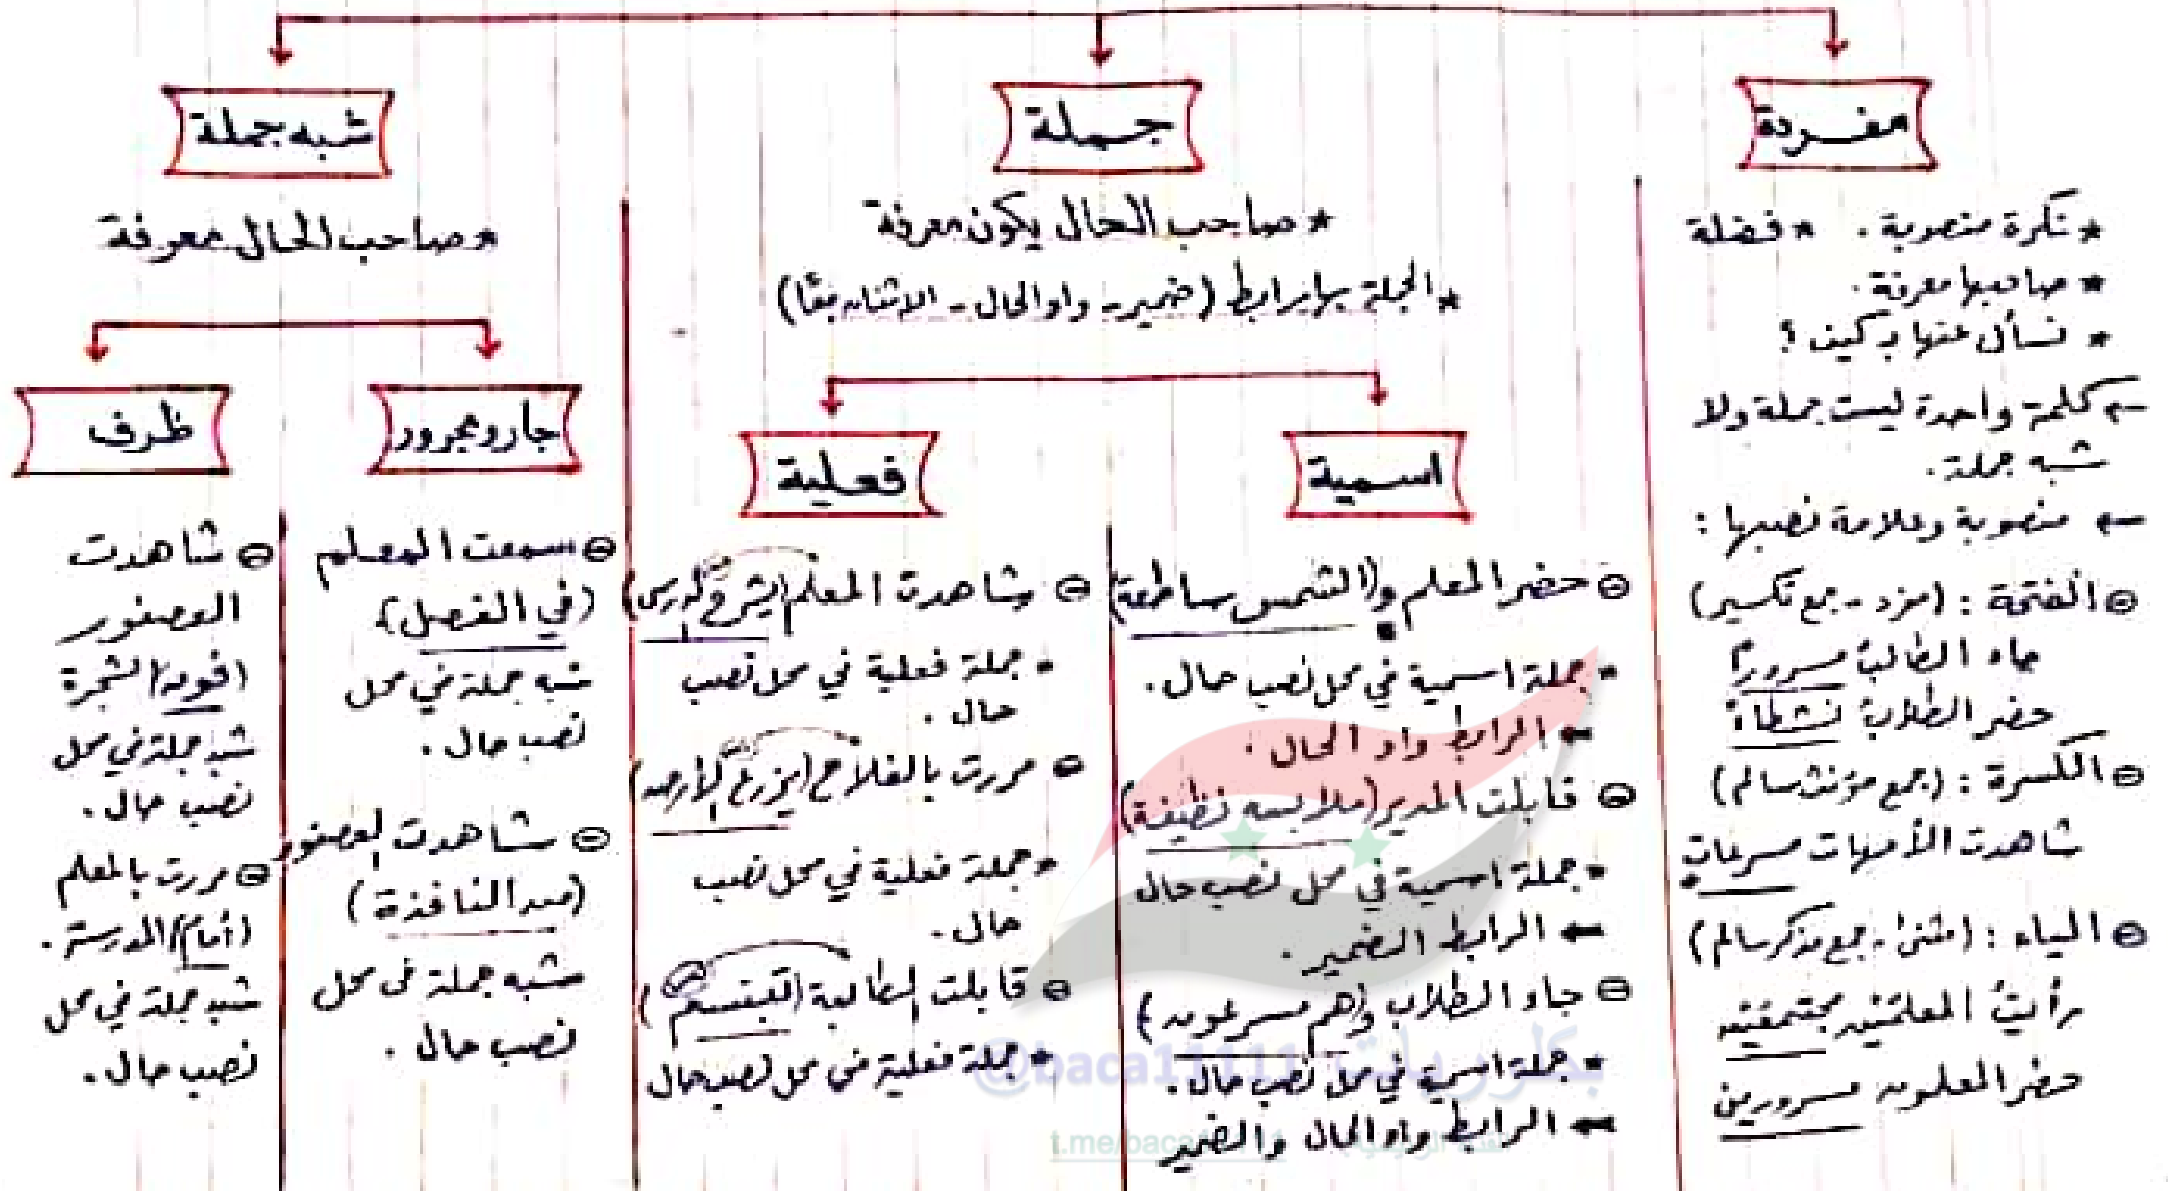 مفردة
* نكرة منصوبة. * فضلة
* صاحبها معرفة.
* نسأل عنها بـ كيف؟
كلمة واحدة ليست جملة ولا
شبه جملة.
منصوبة وعلامة نصبها:
الفتحة: (مفرد - جمع تكسير)
جاء الطالبُ مسرورًا
حضر الطلابُ نشطاءَ
الكسرة: (جمع مؤنث سالم)
شاهدت الأمهات مسرعاتٍ
الياء: (مثنى - جمع مذكر سالم)
رأيتُ المعلمَين مجتمعَين
حضر المعلمون مسرورين
جملة
* صاحب الحال يكون معرفة
* الجملة بها رابط (ضمير - واو الحال - الاثنان معًا)
اسمية
حضر المعلم و(الشمس ساطعة)
* جملة اسمية في محل نصب حال.
الرابط واو الحال.
قابلت المدير (ملابسه نظيفة)
* جملة اسمية في محل نصب حال
الرابط الضمير.
جاء الطلاب (وهم مسرعون)
* جملة اسمية في محل نصب حال.
الرابط واو الحال والضمير
فعلية
شاهدت المعلم (يشرح الدرس)
* جملة فعلية في محل نصب
حال.
مررت بالفلاح (يزرع الأرض)
* جملة فعلية في محل نصب
حال.
قابلت الطالبة (تبتسم)
* جملة فعلية في محل نصب حال
شبه جملة
* صاحب الحال معرفة
جار ومجرور
سمعت المعلم
(في الفصل)
شبه جملة في محل
نصب حال.
شاهدت العصفور
(من النافذة)
شبه جملة في محل
نصب حال.
ظرف
شاهدت
العصفور
(فوق) الشجرة
شبه جملة في محل
نصب حال.
مررت بالمعلم
(أمام) المدرسة.
شبه جملة في محل
نصب حال.
بكلوريات @baca11111